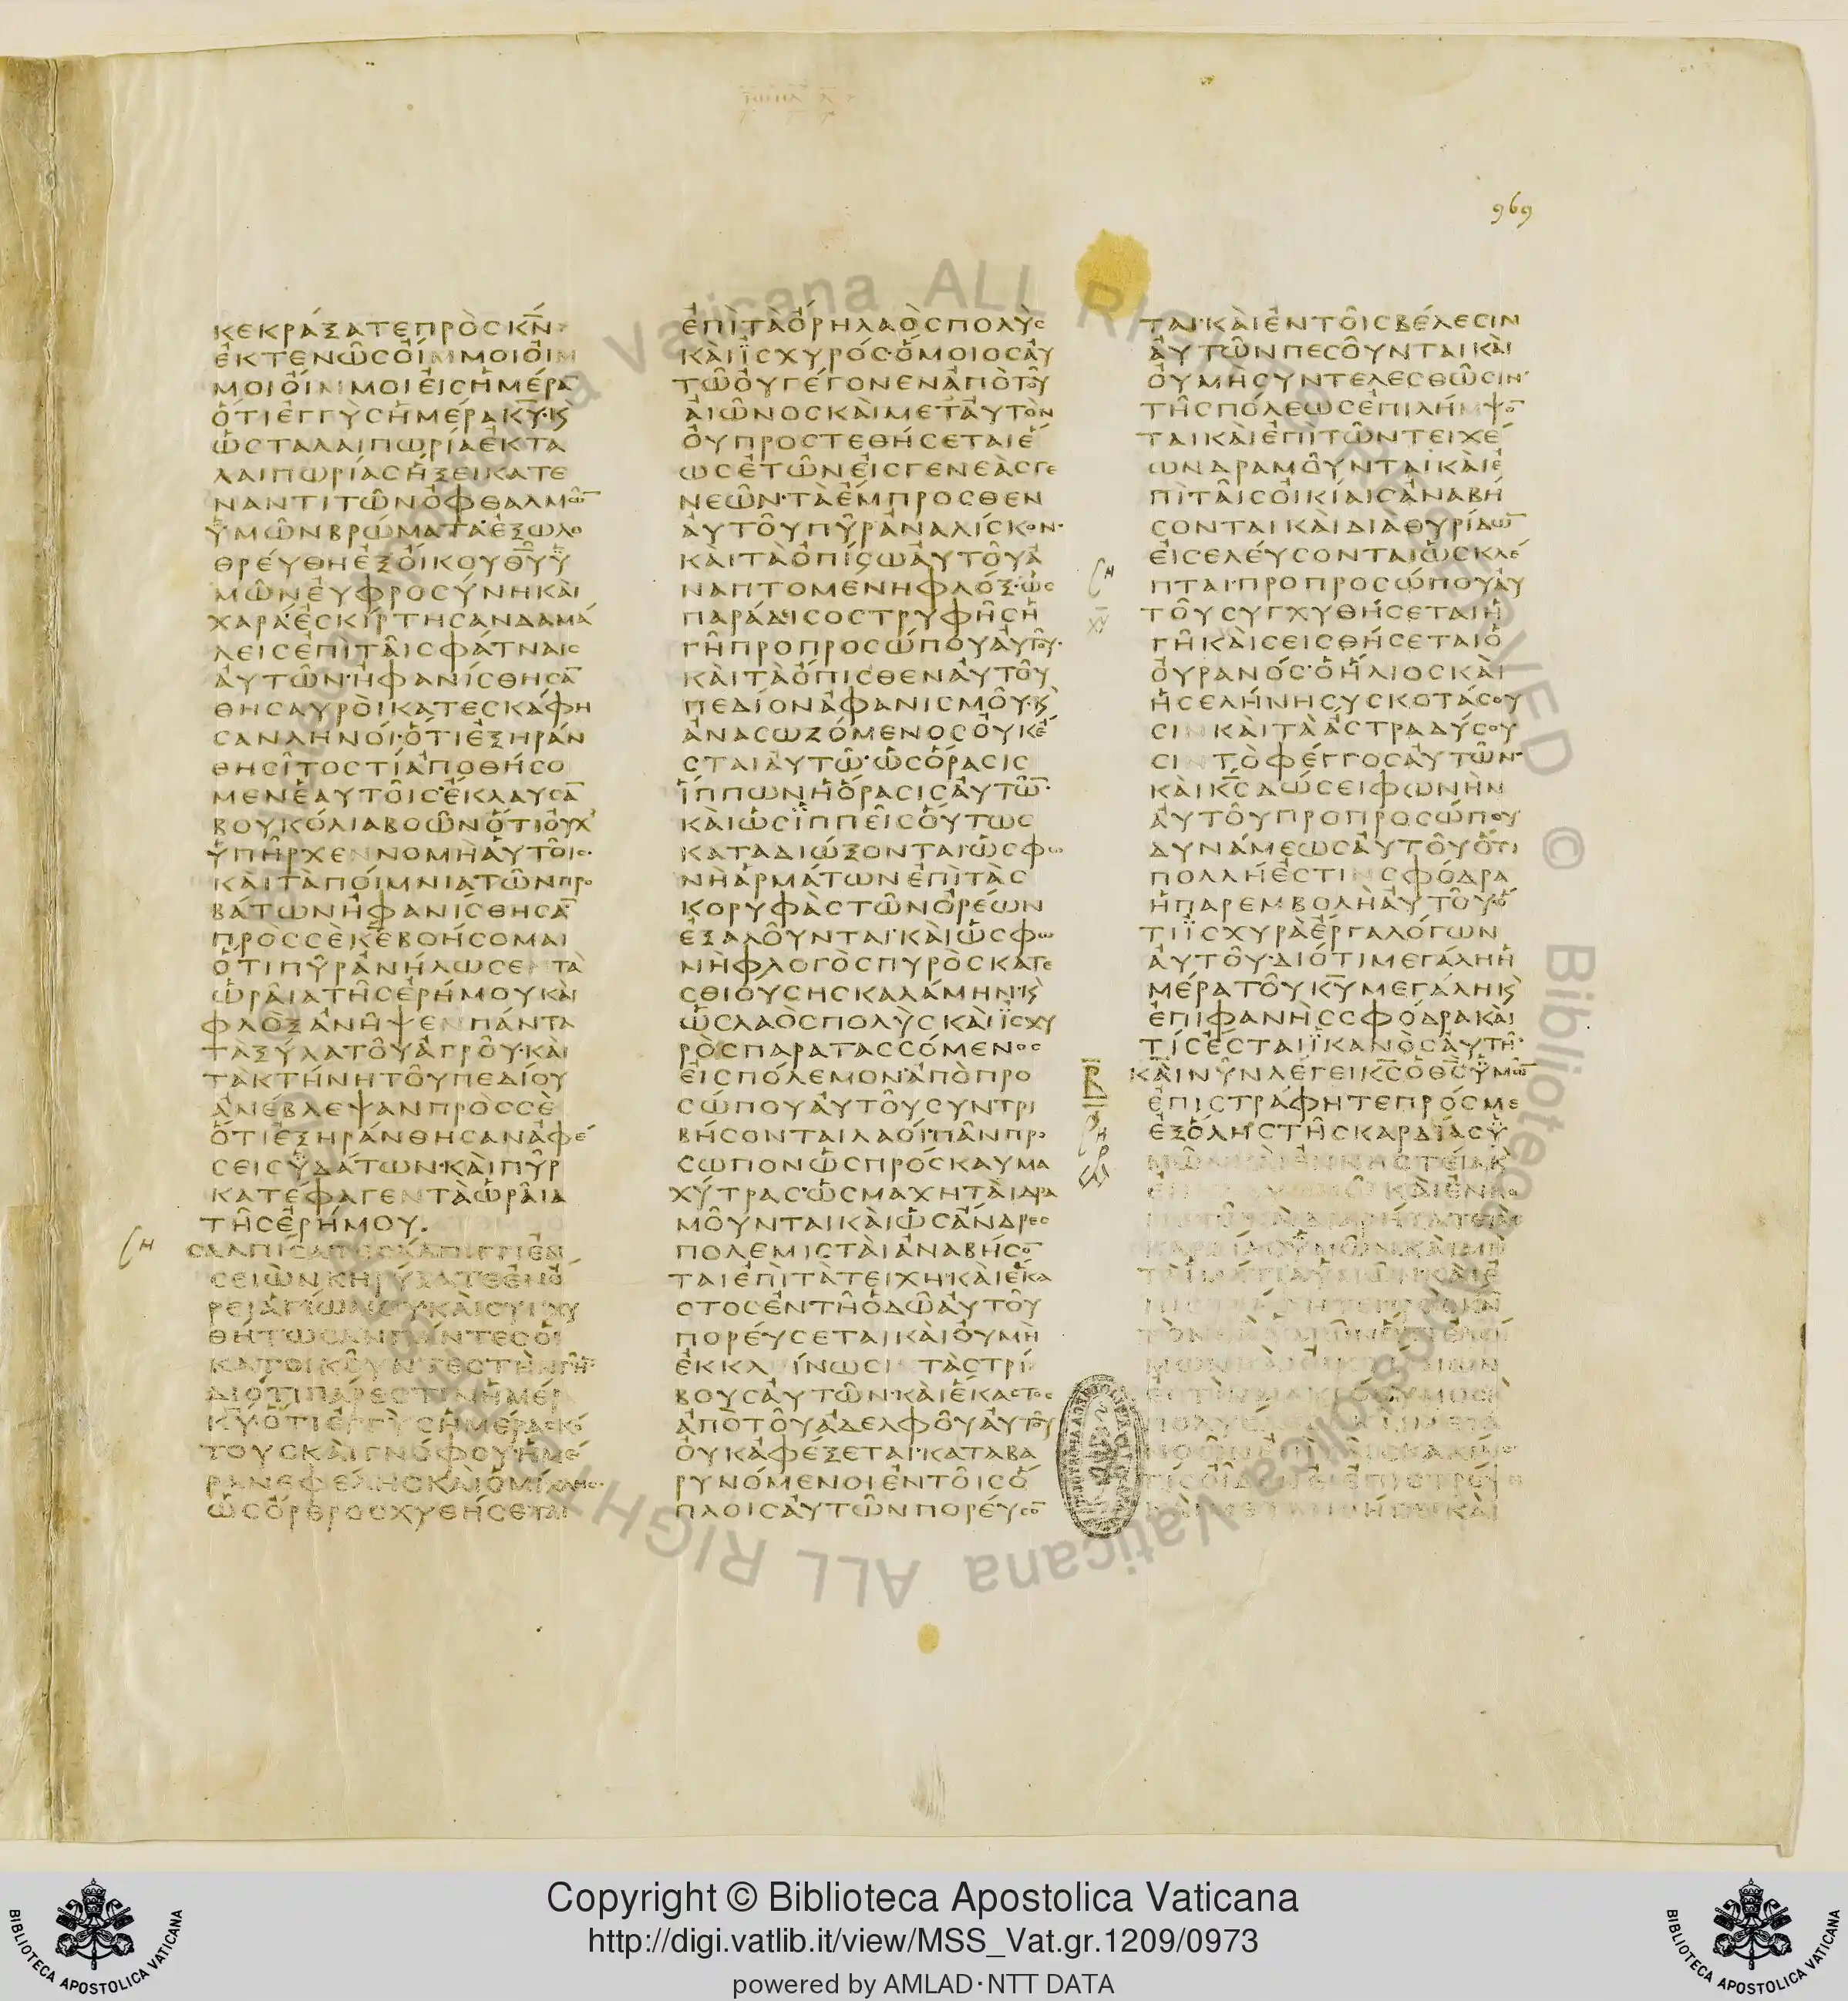 969
ΚΕΚΡΑΞΑΤΕΠΡΟΣΚΝ
ΕΚΤΕΝΩΣΟΙΜΜΟΙΟΙΜ
ΜΟΙΟΙΜΜΟΙΕΙΣΗΜΕΡΑ
ΟΤΙΕΓΓΥΣΗΜΕΡΑΚΥ·Κ
ΩΣΤΑΛΑΙΠΩΡΙΑΕΚΤΑ
ΛΑΙΠΩΡΙΑΣΗΞΕΙΚΑΤΕ
ΝΑΝΤΙΤΩΝΟΦΘΑΛΜΩ
ΥΜΩΝΒΡΩΜΑΤΑΕΞΩΛΟ
ΘΡΕΥΘΗΕΞΟΙΚΟΥΘΥΥ
ΜΩΝΕΥΦΡΟΣΥΝΗΚΑΙ
ΧΑΡΑΕΣΚΙΡΤΗΣΑΝΔΑΜΑ
ΛΕΙΣΕΠΙΤΑΙΣΦΑΤΝΑΙΣ
ΑΥΤΩΝ·ΗΦΑΝΙΣΘΗΣΑ
ΘΗΣΑΥΡΟΙΚΑΤΕΣΚΑΦΗ
ΣΑΝΛΗΝΟΙ·ΟΤΙΕΞΗΡΑΝ
ΘΗΣΙΤΟΣΤΙΑΠΟΘΗΣΟ
ΜΕΝΕΑΥΤΟΙΣ·ΕΚΛΑΥΣΑ
ΒΟΥΚΟΛΙΑΒΟΩΝΟΤΙΟΥΧ
ΥΠΗΡΧΕΝΝΟΜΗΑΥΤΟΙΣ·
ΚΑΙΤΑΠΟΙΜΝΙΑΤΩΝΠΡΟ
ΒΑΤΩΝΗΦΑΝΙΣΘΗΣΑ
ΠΡΟΣΣΕΚΕΒΟΗΣΟΜΑΙ
ΟΤΙΠΥΡΑΝΗΛΩΣΕΝΤΑ
ΩΡΑΙΑΤΗΣΕΡΗΜΟΥΚΑΙ
ΦΛΟΞΑΝΗΨΕΝΠΑΝΤΑ
ΤΑΞΥΛΑΤΟΥΑΓΡΟΥ·ΚΑΙ
ΤΑΚΤΗΝΗΤΟΥΠΕΔΙΟΥ
ΑΝΕΒΛΕΨΑΝΠΡΟΣΣΕ
ΟΤΙΕΞΗΡΑΝΘΗΣΑΝΑΦΕ
ΣΕΙΣΥΔΑΤΩΝ·ΚΑΙΠΥΡ
ΚΑΤΕΦΑΓΕΝΤΑΩΡΑΙΑ
ΤΗΣΕΡΗΜΟΥ.
ΣΑΛΠΙΣΑΤΕΣΑΛΠΙΓΓΙΕΝ
ΣΕΙΩΝΚΗΡΥΞΑΤΕΕΝΟ
ΡΕΙΑΓΙΩΜΟΥΚΑΙΣΥΓΧΥ
ΘΗΤΩΣΑΝΠΑΝΤΕΣΟΙ
ΚΑΤΟΙΚΟΥΝΤΕΣΤΗΝΓΗ
ΔΙΟΤΙΠΑΡΕΣΤΙΝΗΜΕΡ
ΚΥ·ΟΤΙΕΓΓΥΣΗΜΕΡΑΣΚΟ
ΤΟΥΣΚΑΙΓΝΟΦΟΥ·ΗΜΕ
ΡΑΝΕΦΕΛΗΣΚΑΙΟΜΙΧΛΗΣ·
ΩΣΟΡΘΡΟΣΧΥΘΗΣΕΤΑΙ
ΕΠΙΤΑΟΡΗΛΑΟΣΠΟΛΥΣ
ΚΑΙΪΣΧΥΡΟΣ·ΟΜΟΙΟΣΑΥ
ΤΩΟΥΓΕΓΟΝΕΝΑΠΟΤΟΥ
ΑΙΩΝΟΣΚΑΙΜΕΤΑΥΤΟΝ
ΟΥΠΡΟΣΤΕΘΗΣΕΤΑΙΕ
ΩΣΕΤΩΝΕΙΣΓΕΝΕΑΣΓΕ
ΝΕΩΝ·ΤΑΕΜΠΡΟΣΘΕΝ
ΑΥΤΟΥΠΥΡΑΝΑΛΙΣΚΟΝ·
ΚΑΙΤΑΟΠΙΣΩΑΥΤΟΥΑ
ΝΑΠΤΟΜΕΝΗΦΛΟΞ·ΩΣ
ΠΑΡΑΔΙΣΟΣΤΡΥΦΗΣΗ
ΓΗΠΡΟΠΡΟΣΩΠΟΥΑΥΤΟΥ·
ΚΑΙΤΑΟΠΙΣΘΕΝΑΥΤΟΥ
ΠΕΔΙΟΝΑΦΑΝΙΣΜΟΥ·Κ
ΑΝΑΣΩΖΟΜΕΝΟΣΟΥΚΕ
ΣΤΑΙΑΥΤΩ·ΩΣΟΡΑΣΙΣ
ΪΠΠΩΝΗΟΡΑΣΙΣΑΥΤΩ·
ΚΑΙΩΣΪΠΠΕΙΣΟΥΤΩΣ
ΚΑΤΑΔΙΩΞΟΝΤΑΙΩΣΦΩ
ΝΗΑΡΜΑΤΩΝΕΠΙΤΑΣ
ΚΟΡΥΦΑΣΤΩΝΟΡΕΩΝ
ΕΞΑΛΟΥΝΤΑΙ·ΚΑΙΩΣΦΩ
ΝΗΦΛΟΓΟΣΠΥΡΟΣΚΑΤΕ
ΣΘΙΟΥΣΗΣΚΑΛΑΜΗΝ·Κ
ΩΣΛΑΟΣΠΟΛΥΣΚΑΙΪΣΧΥ
ΡΟΣΠΑΡΑΤΑΣΣΟΜΕΝΟΣ
ΕΙΣΠΟΛΕΜΟΝ·ΑΠΟΠΡΟ
ΣΩΠΟΥΑΥΤΟΥΣΥΝΤΡΙ
ΒΗΣΟΝΤΑΙΛΑΟΙ·ΠΑΝΠΡΟ
ΣΩΠΟΝΩΣΠΡΟΣΚΑΥΜΑ
ΧΥΤΡΑΣ·ΩΣΜΑΧΗΤΑΙΔΡΑ
ΜΟΥΝΤΑΙΚΑΙΩΣΑΝΔΡΕΣ
ΠΟΛΕΜΙΣΤΑΙΑΝΑΒΗΣΟ
ΤΑΙΕΠΙΤΑΤΕΙΧΗ·ΚΑΙΕΚΑ
ΣΤΟΣΕΝΤΗΟΔΩΑΥΤΟΥ
ΠΟΡΕΥΣΕΤΑΙΚΑΙΟΥΜΗ
ΕΚΚΛΙΝΩΣΙΝΤΑΣΤΡΙ
ΒΟΥΣΑΥΤΩΝ·ΚΑΙΕΚΑΣΤΟΣ
ΑΠΟΤΟΥΑΔΕΛΦΟΥΑΥΤΟΥ
ΟΥΚΑΦΕΞΕΤΑΙ·ΚΑΤΑΒΑ
ΡΥΝΟΜΕΝΟΙΕΝΤΟΙΣΟ
ΠΛΟΙΣΑΥΤΩΝΠΟΡΕΥΣΟ
ΤΑΙ·ΚΑΙΕΝΤΟΙΣΒΕΛΕΣΙΝ
ΑΥΤΩΝΠΕΣΟΥΝΤΑΙΚΑΙ
ΟΥΜΗΣΥΝΤΕΛΕΣΘΩΣΙΝ·
ΤΗΣΠΟΛΕΩΣΕΠΙΛΗΜΨΟ
ΤΑΙΚΑΙΕΠΙΤΩΝΤΕΙΧΕ
ΩΝΔΡΑΜΟΥΝΤΑΙΚΑΙΕ
ΠΙΤΑΙΣΟΙΚΙΑΙΣΑΝΑΒΗ
ΣΟΝΤΑΙΚΑΙΔΙΑΘΥΡΙΔΩ
ΕΙΣΕΛΕΥΣΟΝΤΑΙΩΣΚΛΕ
ΠΤΑΙ·ΠΡΟΠΡΟΣΩΠΟΥΑΥ
ΤΟΥΣΥΓΧΥΘΗΣΕΤΑΙΗ
ΓΗΚΑΙΣΕΙΣΘΗΣΕΤΑΙΟ
ΟΥΡΑΝΟΣ·ΟΗΛΙΟΣΚΑΙ
ΗΣΕΛΗΝΗΣΥΣΚΟΤΑΣΟΥ
ΣΙΝΚΑΙΤΑΑΣΤΡΑΔΥΣΟΥ
ΣΙΝΤΟΦΕΓΓΟΣΑΥΤΩΝ·
ΚΑΙΚΣΔΩΣΕΙΦΩΝΗΝ
ΑΥΤΟΥΠΡΟΠΡΟΣΩΠΟΥ
ΔΥΝΑΜΕΩΣΑΥΤΟΥΟΤΙ
ΠΟΛΛΗΕΣΤΙΝΣΦΟΔΡΑ
ΗΠΑΡΕΜΒΟΛΗΑΥΤΟΥ·Ο
ΤΙΪΣΧΥΡΑΕΡΓΑΛΟΓΩΝ
ΑΥΤΟΥ·ΔΙΟΤΙΜΕΓΑΛΗΗ
ΜΕΡΑΤΟΥΚΥΜΕΓΑΛΗΚ
ΕΠΙΦΑΝΗΣΣΦΟΔΡΑΚΑΙ
ΤΙΣΕΣΤΑΙΪΚΑΝΟΣΑΥΤΗ·
ΚΑΙΝΥΝΛΕΓΕΙΚΣΟΘΣΫΜΩ
ΕΠΙΣΤΡΑΦΗΤΕΠΡΟΣΜΕ
ΕΞΟΛΗΣΤΗΣΚΑΡΔΙΑΣΫ
ΜΩΝΚΑΙΕΝΝΗΣΤΕΙΑΚ
Copyright © Biblioteca Apostolica Vaticana
http://digi.vatlib.it/view/MSS_Vat.gr.1209/0973
powered by AMLAD·NTT DATA